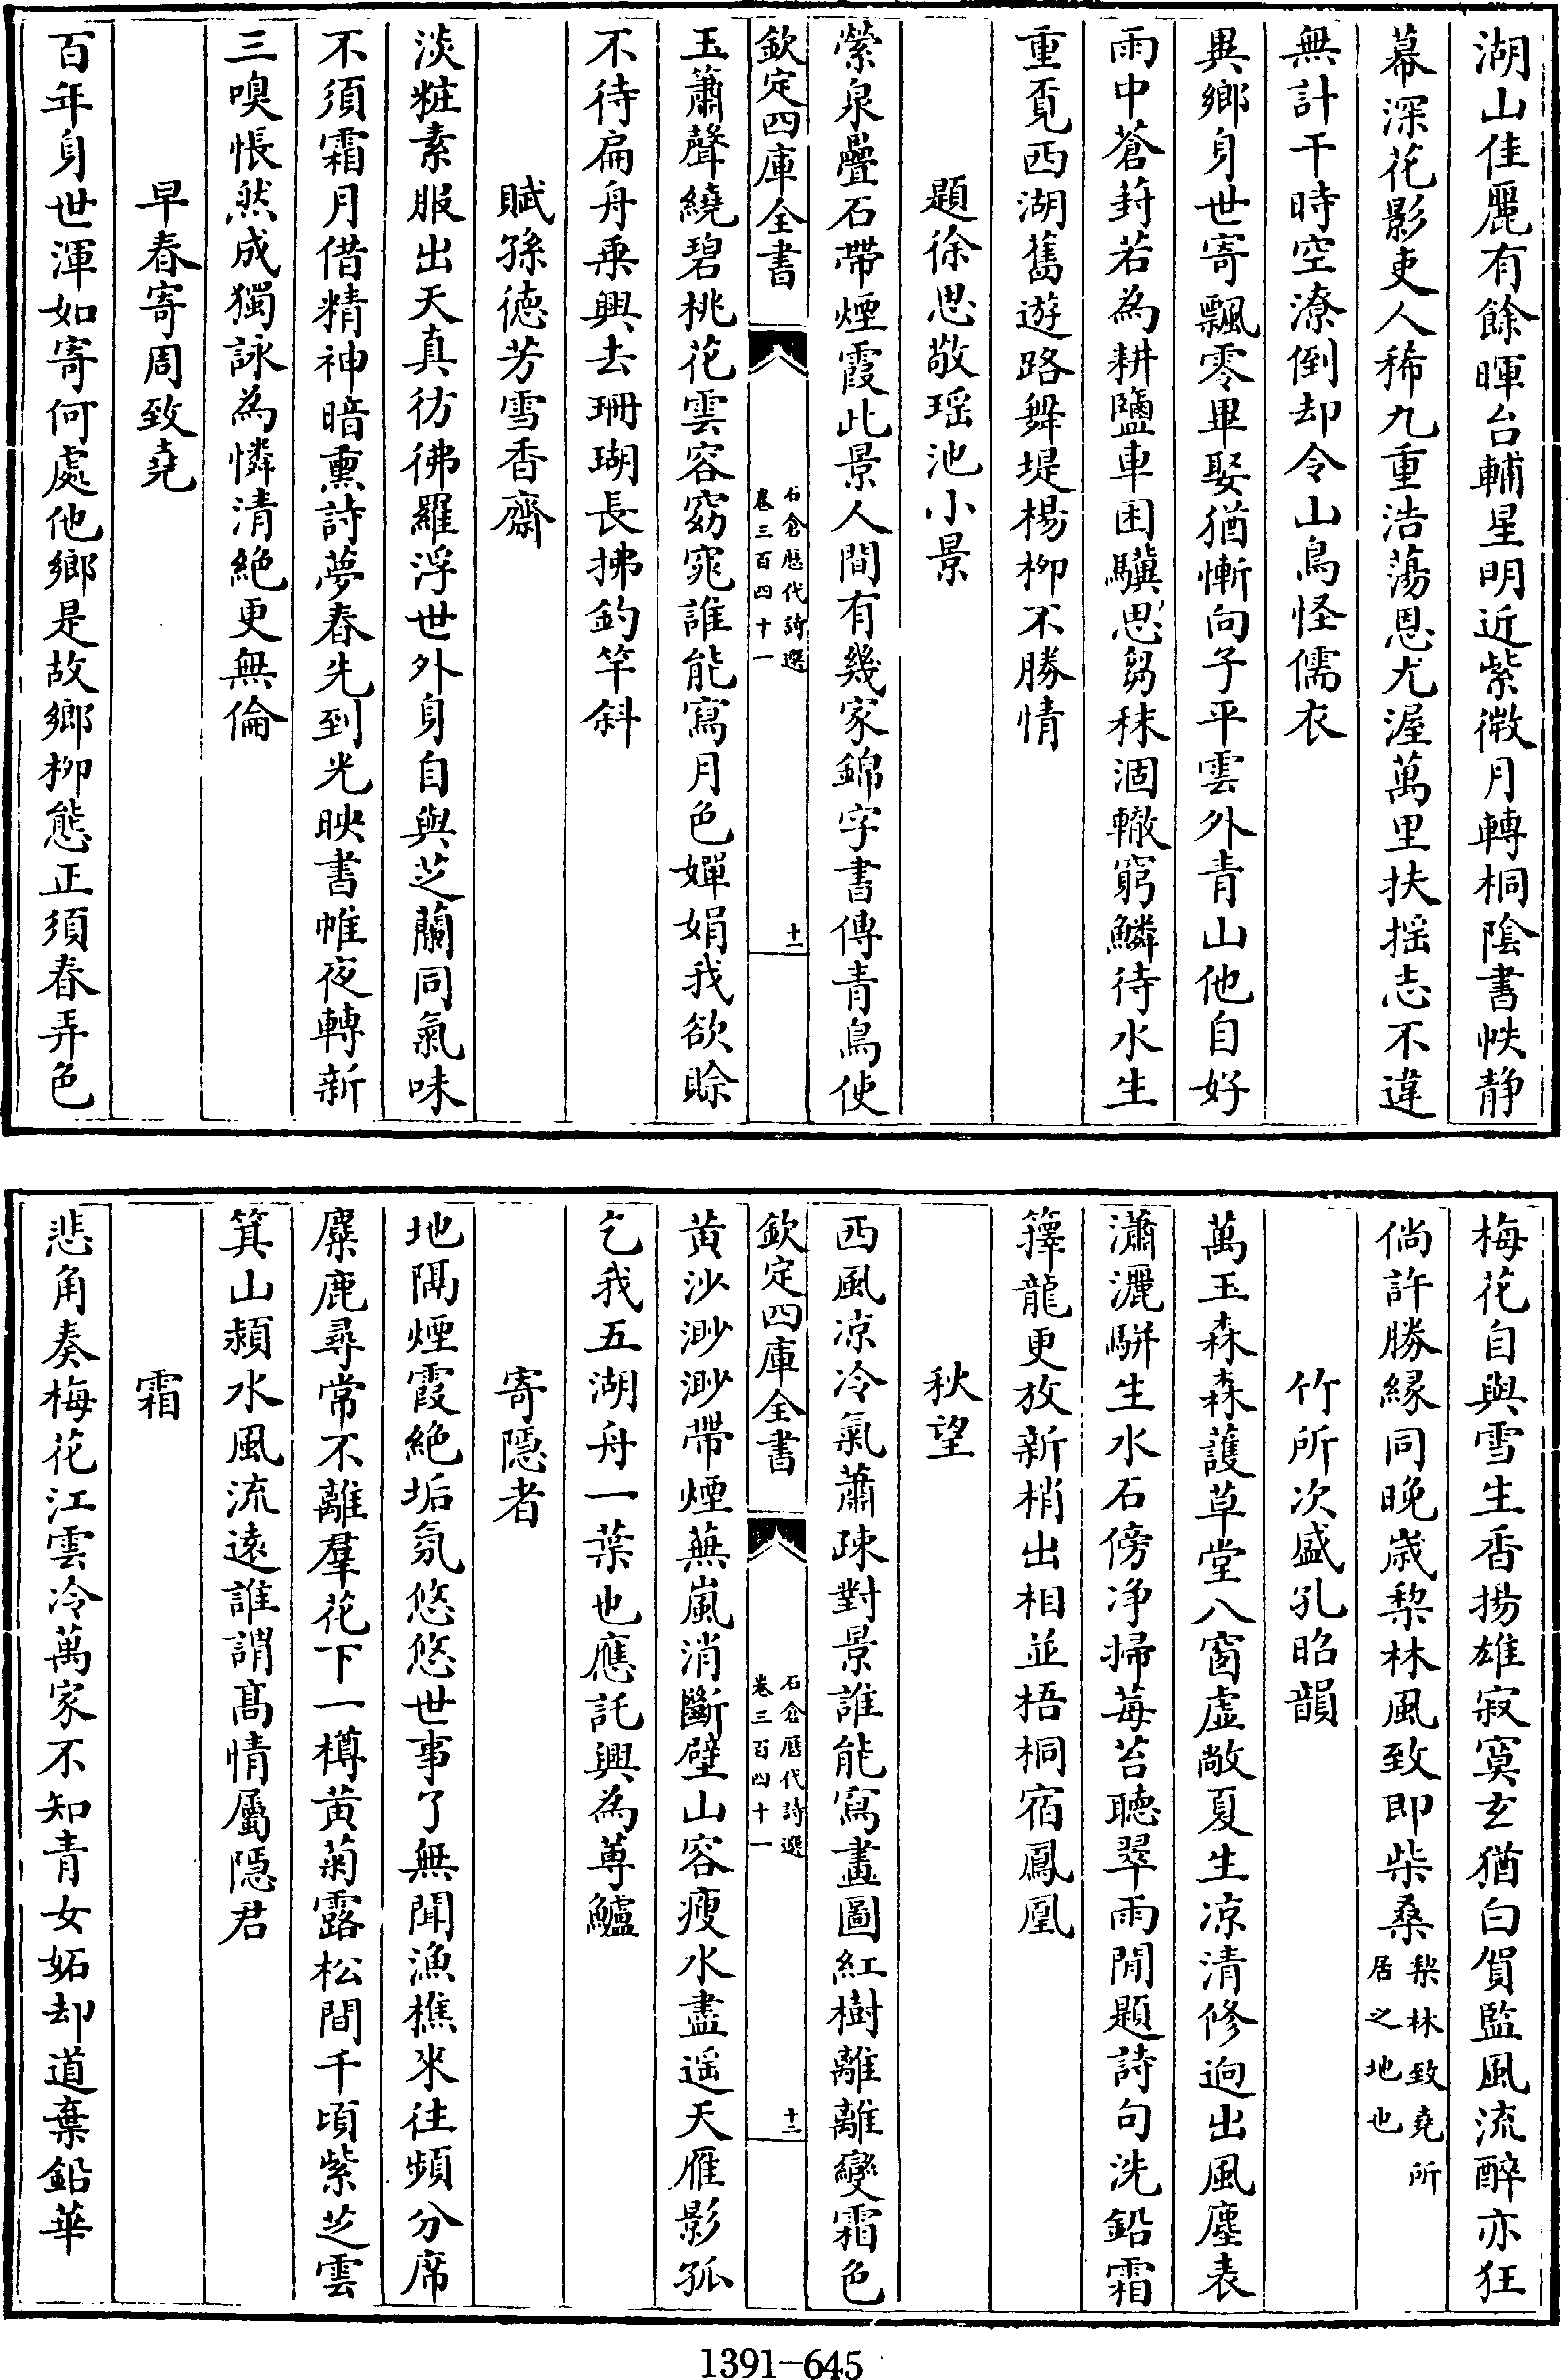 湖山佳麗有餘暉台輔星明近紫微月轉桐陰書帙靜
幕深花影吏人稀九重浩蕩恩尤渥萬里扶揺志不違
無計干時空潦倒却令山鳥怪儒衣
異鄉身世寄飄零畢娶猶慚向子平雲外青山他自好
雨中蒼葑若為耕鹽車困驥思芻秣涸轍窮鱗待水生
重覔西湖舊遊路舞堤楊栁不勝情
題徐思敬瑶池小景
縈泉疊石帶煙霞此景人間有幾家錦字書傳青鳥使
欽定四庫全書
石倉歴代詩選
卷三百四十一
十一
玉簫聲繞碧桃花雲容窈窕誰能寫月色嬋娟我欲賒
不待扁舟乗興去珊瑚長拂釣竿斜
賦孫徳芳雪香齋
淡粧素服出天真彷彿羅浮世外身自與芝蘭同氣味
不須霜月借精神暗熏詩夢春先到光映書帷夜轉新
三嗅悵然成獨詠為憐清絶更無倫
早春寄周致堯
百年身世渾如寄何處他鄉是故鄉栁態正須春弄色
梅花自與雪生香揚雄寂寞玄猶白賀監風流醉亦狂
倘許勝緣同晚嵗棃林風致即柴桑
棃林致堯所
居之地也
竹所次盛孔昭韻
萬玉森森護草堂八窗虚敞夏生凉清修逈出風塵表
瀟灑駢生水石傍净掃莓苔聴翠雨閒題詩句洗鉛霜
籜龍更放新梢出相並梧桐宿鳳凰
秋望
西風凉冷氣蕭疎對景誰能寫畫圖紅樹離離變霜色
欽定四庫全書
石倉歴代詩選
卷三百四十一
十二
黄沙渺渺帶煙蕪嵐消斷壁山容瘦水盡遥天雁影孤
乞我五湖舟一葉也應託興為蓴鱸
寄隠者
地隔煙霞絶垢氛悠悠世事了無聞漁樵來往頻分席
麋鹿尋常不離羣花下一樽黄菊露松間千頃紫芝雲
箕山潁水風流遠誰謂髙情屬隠君
霜
悲角奏梅花江雲冷萬家不知青女妬却道棄鉛華
1391-645